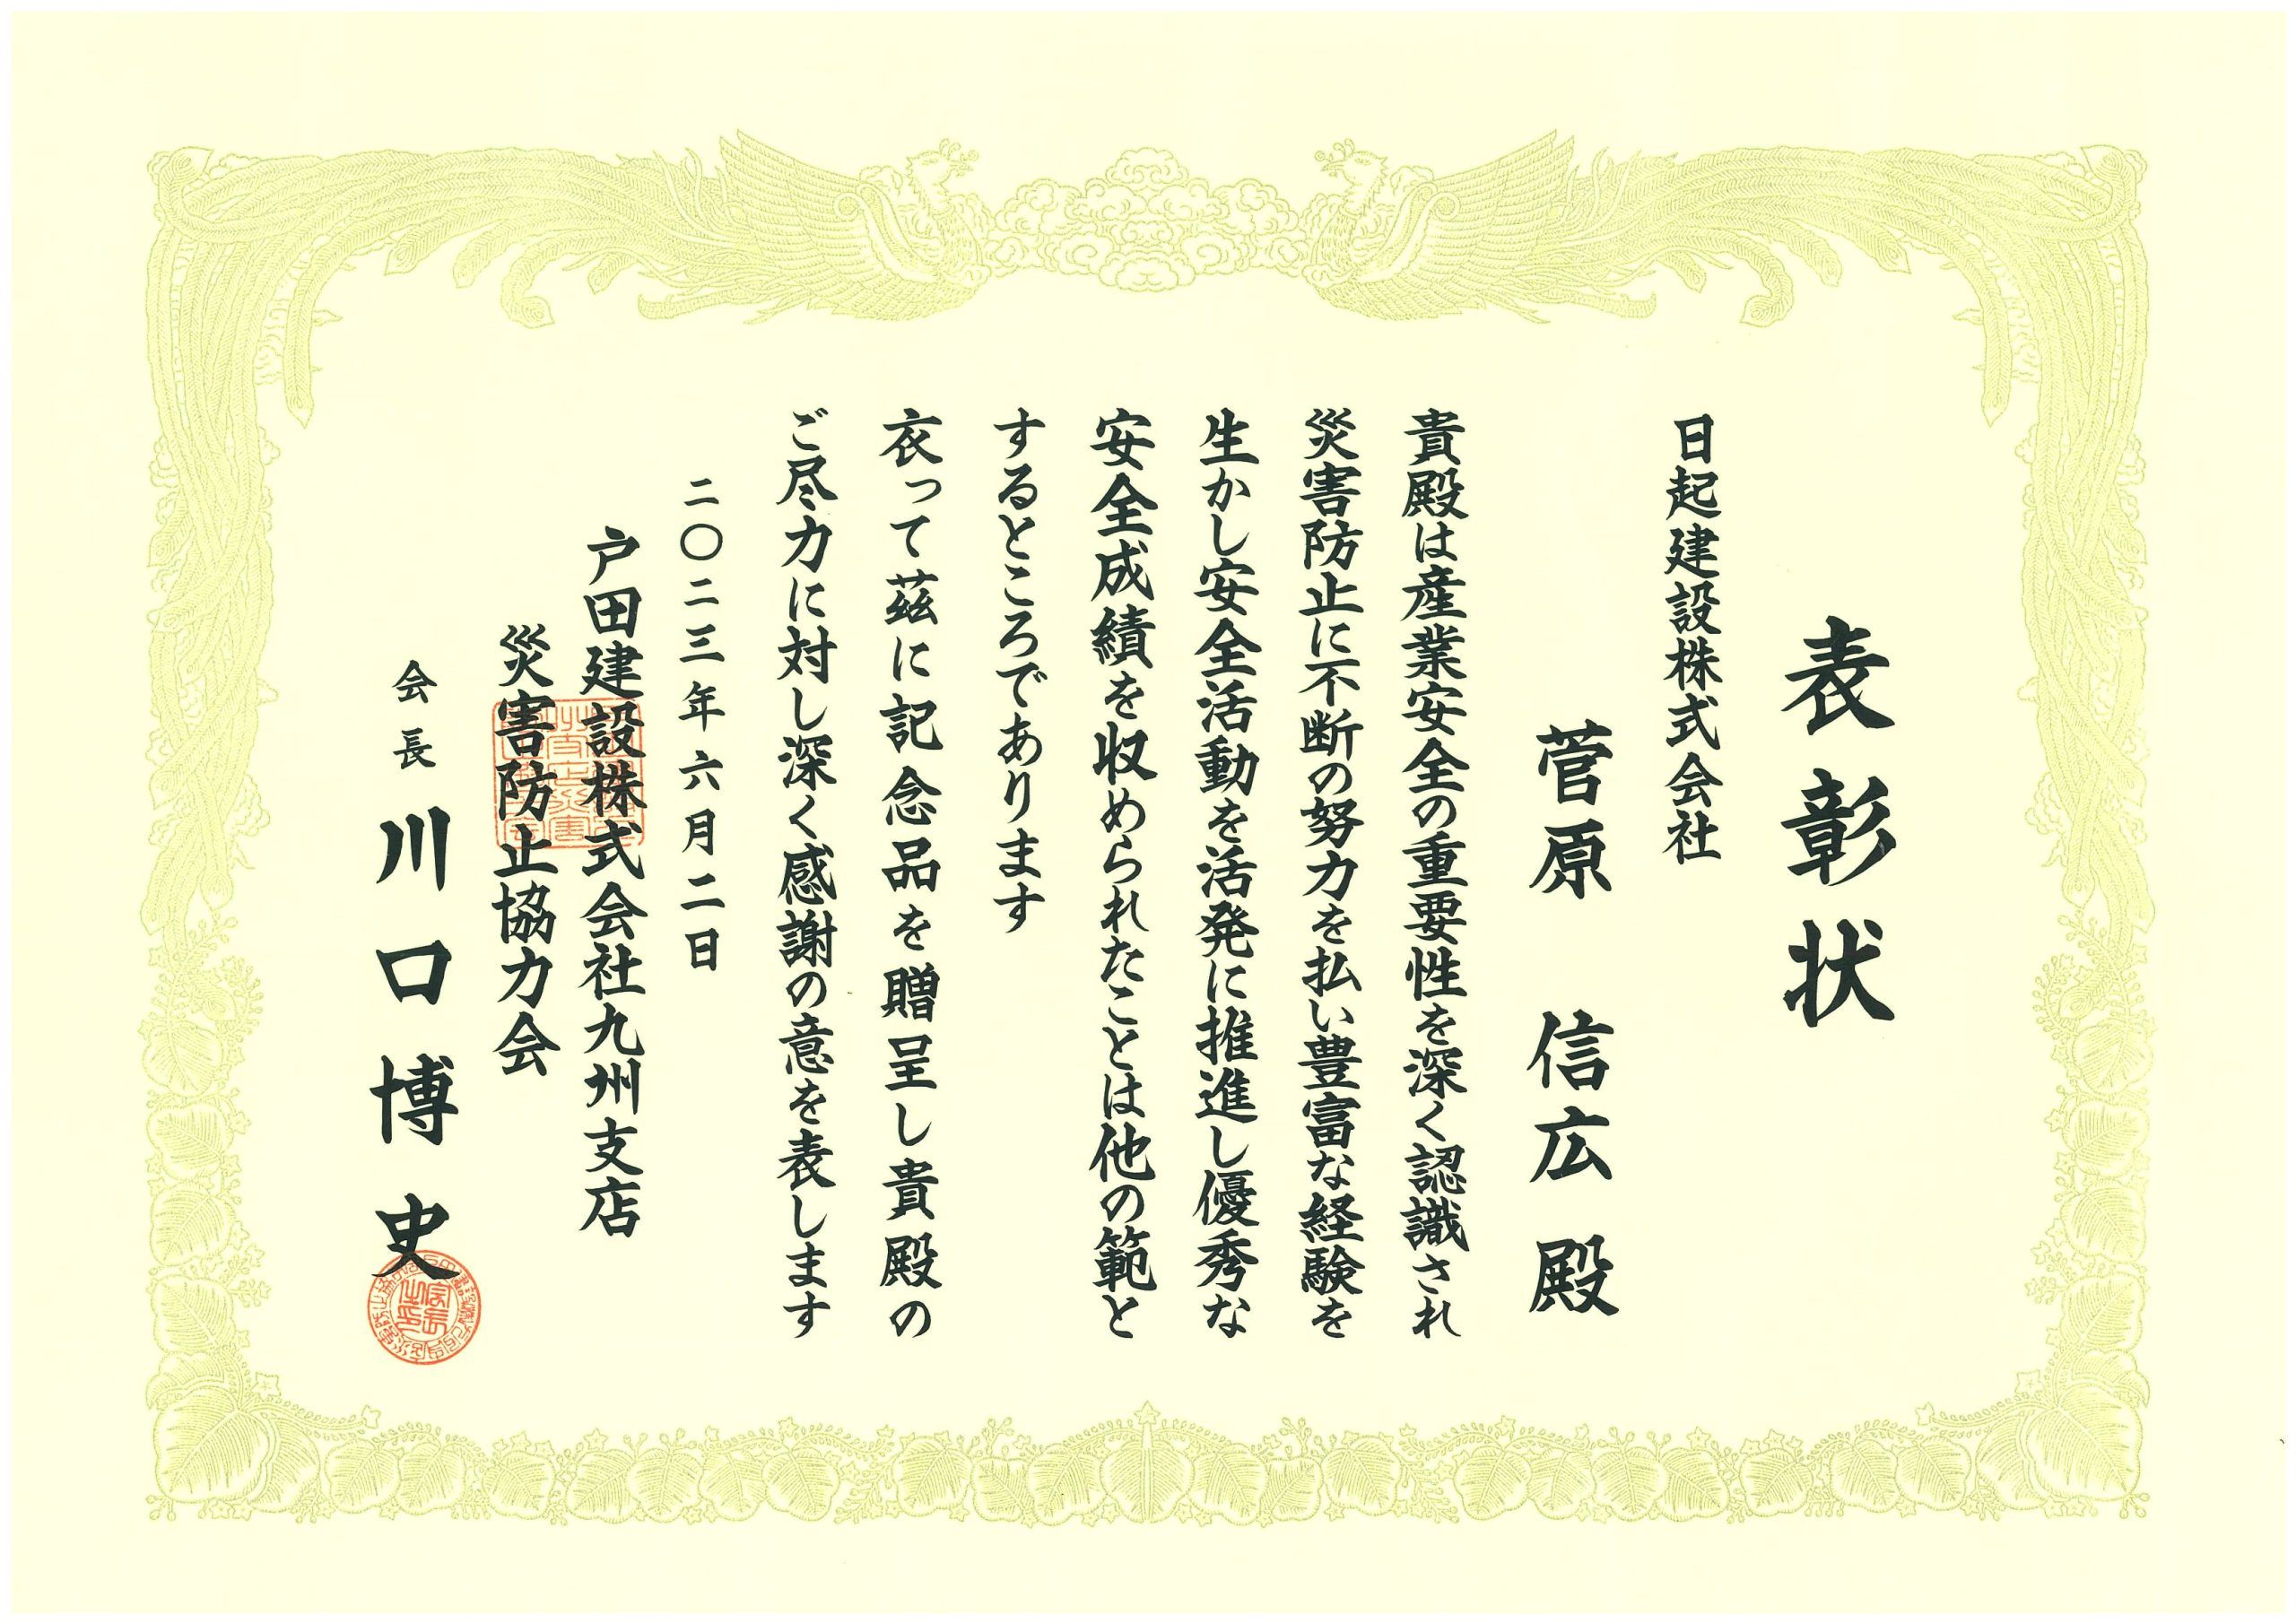 表彰状
日起建設株式会社
菅原 信広 殿
貴殿は産業安全の重要性を深く認識され
災害防止に不断の努力を払い豊富な経験を
生かし安全活動を活発に推進し優秀な
安全成績を収められたことは他の範と
するところであります
衣って茲に記念品を贈呈し貴殿の
ご尽力に対し深く感謝の意を表します
二〇二三年六月二日
戸田建設株式会社九州支店
災害防止協力会
会長 川口博史